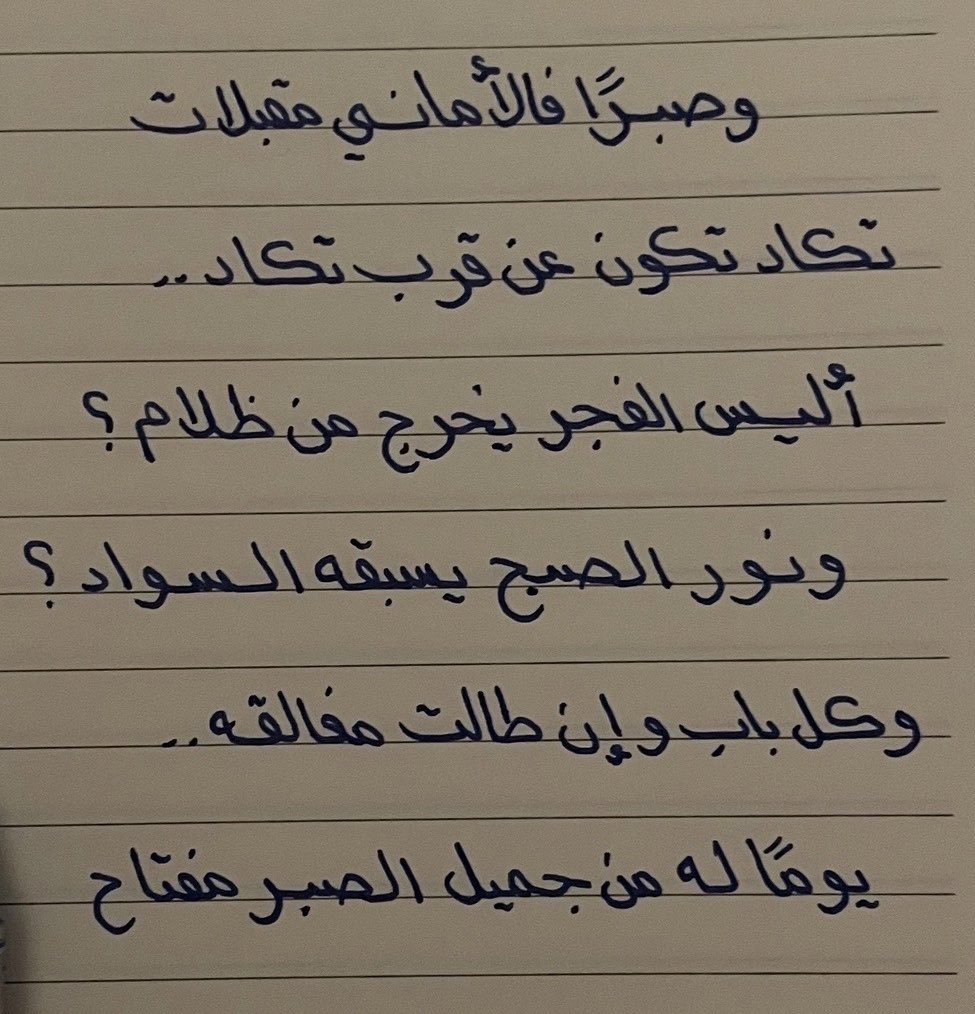 وصبرًا فالأماني مقبلات
تكاد تكون عن قرب تكاد..
أليس الفجر يخرج من ظلام؟
ونور الصبح يسبقه السواد؟
وكل باب وإن طالت مغالقه..
يومًا له من جميل الصبر مفتاح